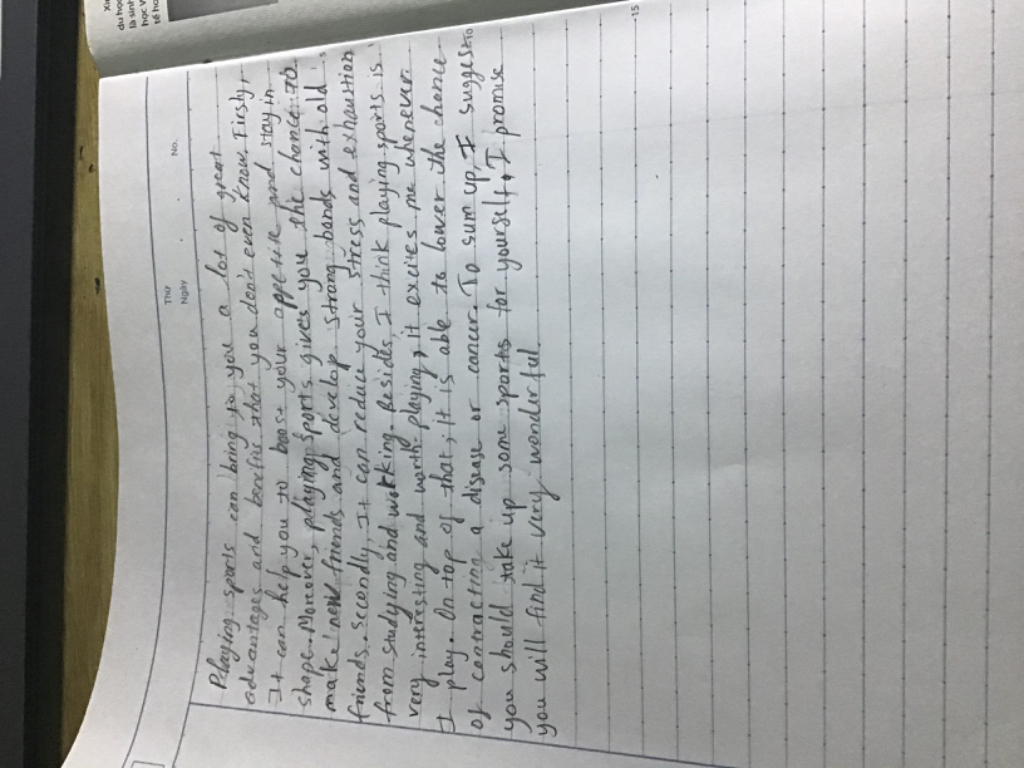 Xin
du học
là sinh
học V
tế họ
Thứ
Ngày
No.
Playing sports can bring to you a lot of great
advantages and benefits that you don't even know. Firstly,
It can help you to boost your appetite and stay in
shape. Moreover, playing sports gives you the chance to
make new friends and develop strong bonds with old
friends. Secondly, It can reduce your stress and exhaustion
from studying and working. Besides, I think playing sports is
very interesting and worth playing, it excites me whenever
I play. On top of that, It is able to lower the chance
of contracting a disease or cancer. To sum up, I suggestio
you should take up some sports for yourself, I promise
you will find it very wonderful.
15